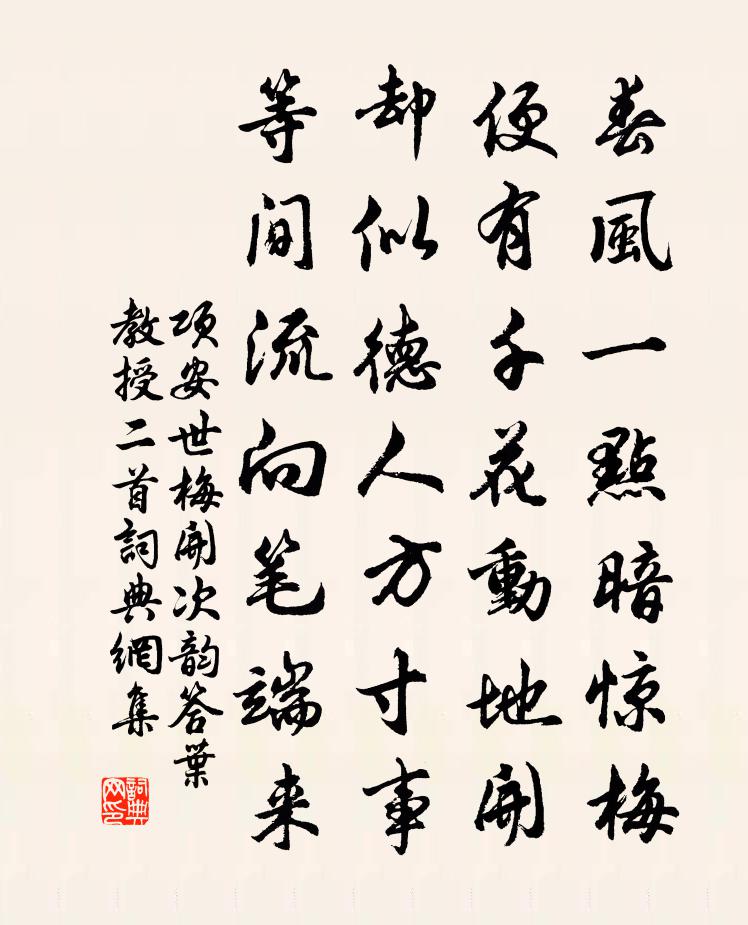 春風一點暗惊梅
便有千花動地開
却似德人方寸事
等间流向笔端来
项安世梅開次韵答葉
教授二首詞典網集
詞典网印